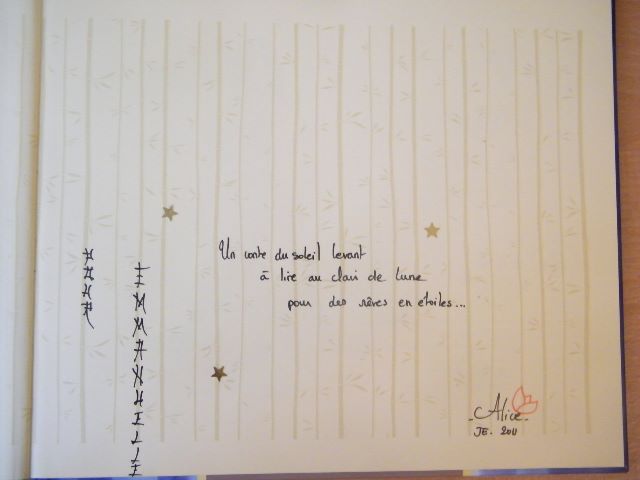 POUR
EMMANUELLE
Un conte du soleil levant
à lire au clair de lune
pour des rêves en étoiles...
-Alice-
JE. 2011